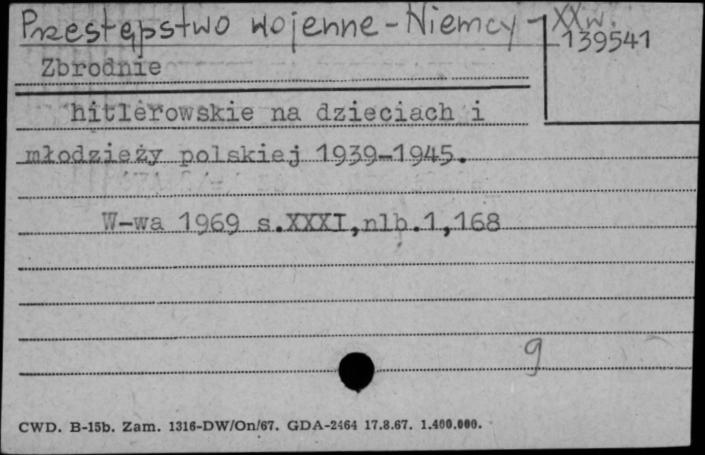 Przestępstwo wojenne - Niemcy - XX w.
139541
Zbrodnie
hitlerowskie na dzieciach i
młodzieży polskiej 1939-1945.
W-wa 1969 s.XXXI,nlb.1,168
9
CWD. B-15b. Zam. 1316-DW/On/67. GDA-2464 17.8.67. 1.400.000.